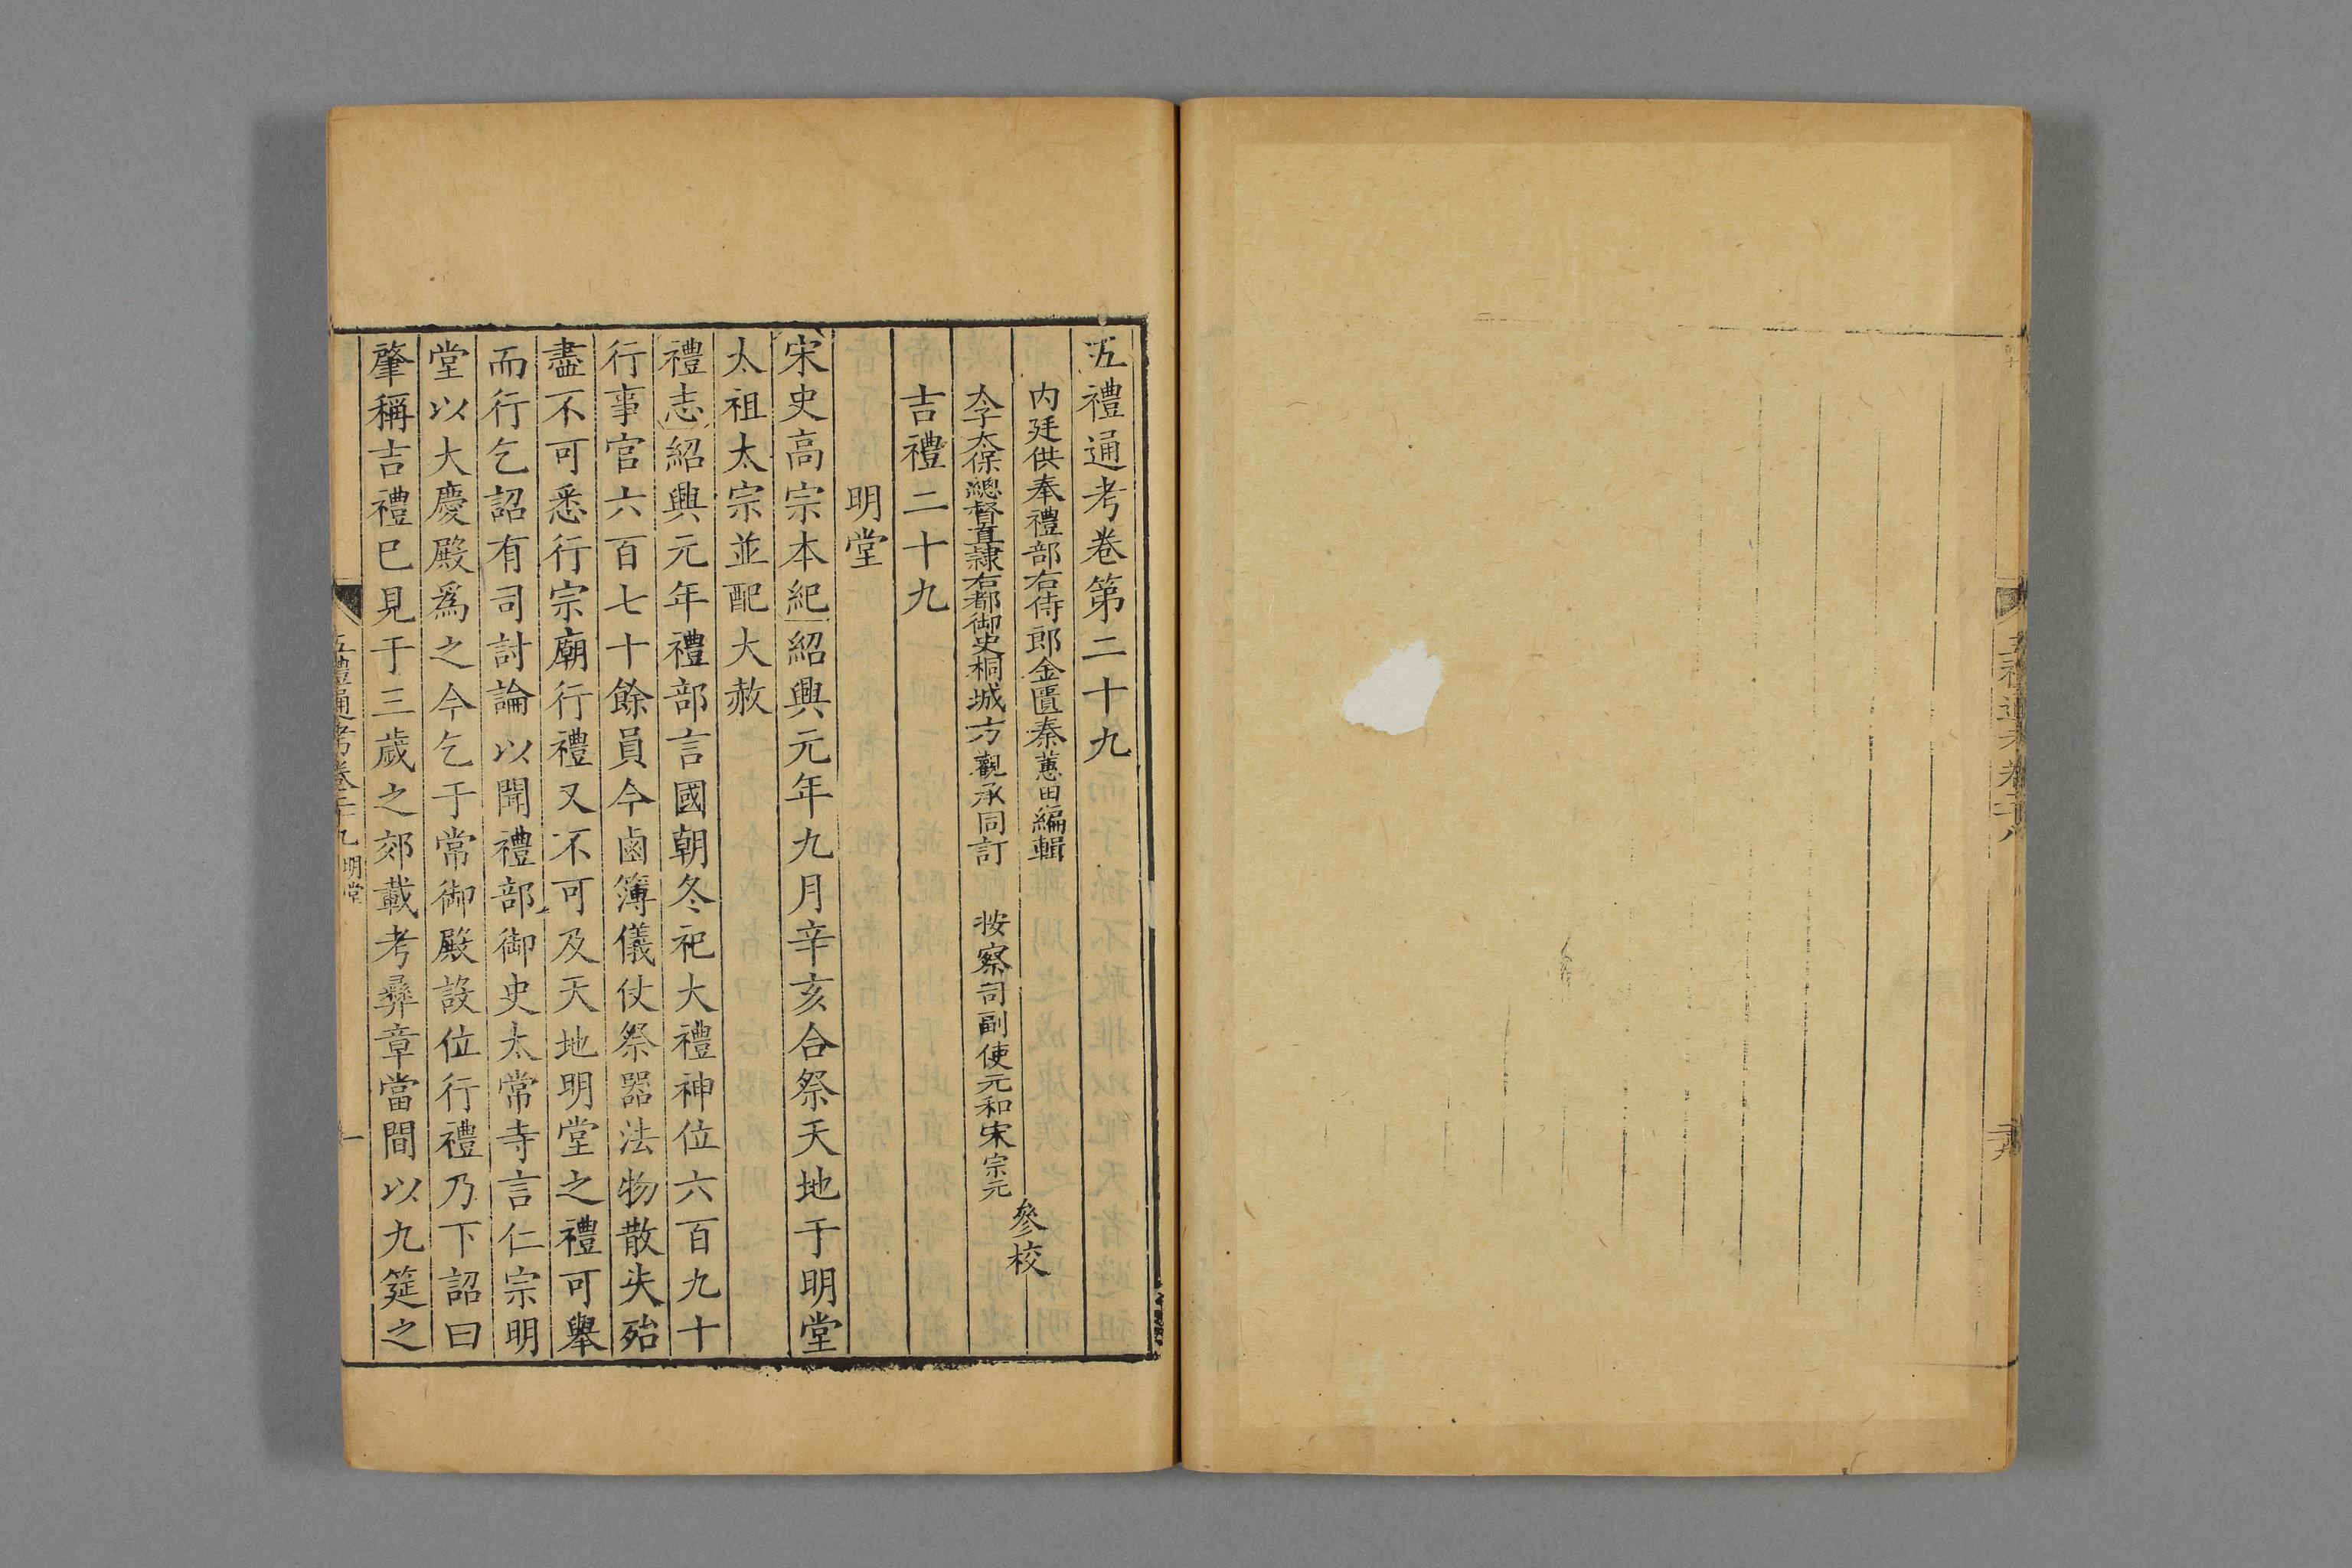 五禮通考卷第二十九
内廷供奉禮部右侍郎金匱秦蕙田編輯
太子太保總督直隸右都御史桐城方觀承同訂
按察司副使元和宋宗元
參校
吉禮二十九
明堂
宋史高宗本紀紹興元年九月辛亥合祭天地于明堂
太祖太宗並配大赦
禮志紹興元年禮部言國朝冬祀大禮神位六百九十
行事官六百七十餘員今鹵簿儀仗祭器法物散失殆
盡不可悉行宗廟行禮又不可及天地明堂之禮可舉
而行乞詔有司討論以聞禮部御史太常寺言仁宗明
堂以大慶殿爲之今乞于常御殿設位行禮乃下詔曰
肇稱吉禮已見于三歲之郊載考彝章當間以九筵之
五禮通考卷二十九 明堂
一